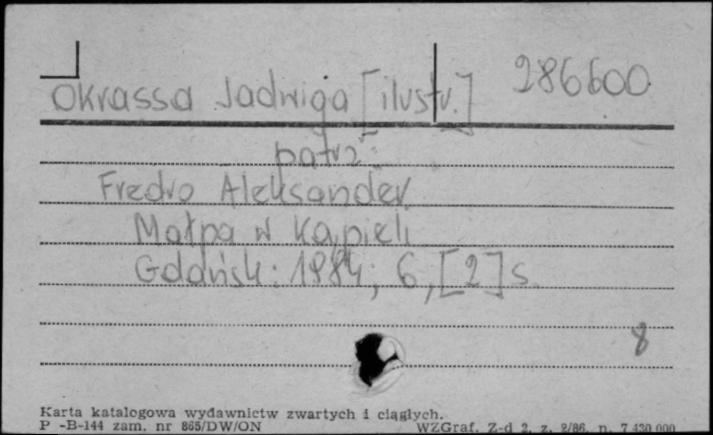 Okrassa Jadwiga [ilustr.] 286600
patrz:
Fredro Aleksander
Małpa w kąpieli
Gdańsk: 1984; 6, [2] s.
8
Karta katalogowa wydawnictw zwartych i ciągłych.
P -B-144 zam. nr 865/DW/ON WZGraf. Z-d 2, z. 2/86, n. 7 430 000